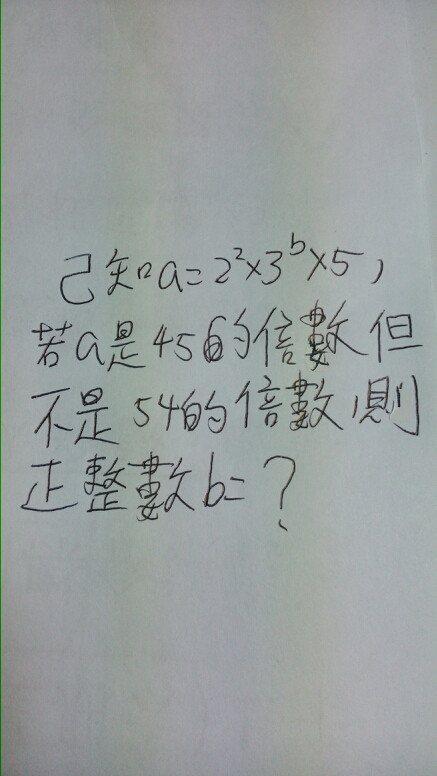 己知a=2²×3ᵇ×5，
若a是45的倍數但
不是54的倍數，則
正整數b=？